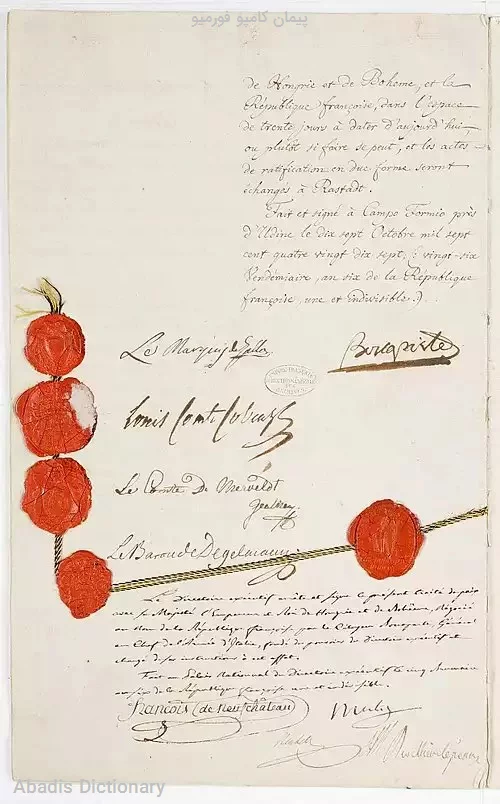 پیمان کامپو فورمیو
de Hongrie et de Boheme, et la
République françoise, dans l'espace
de trente jours à dater d'aujourd'hui
ou plutôt si faire se peut, et les actes
de ratification en due forme seront
échangés à Rastadt.
Fait et signé à Campo Formio près
d'Udine le dix sept Octobre mil sept
cent quatre vingt dix sept, (vingt-six
Vendémiaire, an six de la République
françoise, une et indivisible.)
Le Marquis de Gallo
Bonaparte
Louis Comte Cobenzl
Le Comte De Merveldt
Le Baron de Degelmann
Le Directoire exécutif arrête et signe le présent traité de paix
avec sa Majesté l'Empereur et Roi de Hongrie et de Bohême, négocié
au nom de la République française, par le Citoyen Bonaparte, Général
en Chef de l'Armée d'Italie, fondé de pouvoirs du Directoire exécutif et
chargé de ses instructions à cet effet.
Fait au Palais National du Directoire exécutif le cinq Brumaire
an six de la République française une et indivisible.
François (de neufchateau)
Abadis Dictionary